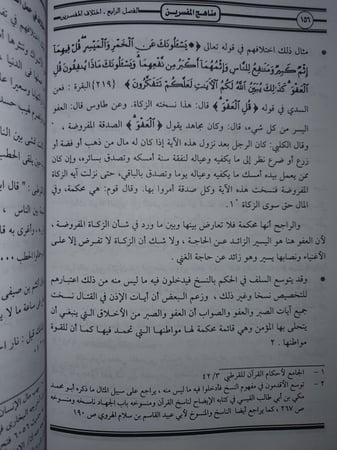 ١٥٦
مناهج المفسرين
الفصل الرابع . اختلاف المفسرين
• مثال ذلك اختلافهم في قوله تعالى ﴿ يَسْـَٔلُونَكَ عَنِ الْخَمْرِ وَالْمَيْسِرِ قُلْ فِيهِمَا
إِثْمٌ كَبِيرٌ وَمَنَٰفِعُ لِلنَّاسِ وَإِثْمُهُمَا أَكْبَرُ مِن نَّفْعِهِمَا وَيَسْـَٔلُونَكَ مَاذَا يُنفِقُونَ قُلِ
الْعَفْوَ كَذَٰلِكَ يُبَيِّنُ اللَّهُ لَكُمُ الْآيَٰتِ لَعَلَّكُمْ تَتَفَكَّرُونَ ﴾ {219} البقرة : فعن
السدي في قوله ﴿ قُلِ الْعَفْوَ ﴾ قال: هذا نسخته الزكاة. وعن طاوس قال: العفو
اليسر من كل شيء، قال: وكان مجاهد يقول ﴿ الْعَفْوَ ﴾ الصدقة المفروضة ,
وقال الكلبي: كان الرجل بعد نزول هذه الآية إذا كان له مال من ذهب أو فضة أو
زرع أو ضرع نظر إلى ما يكفيه وعياله لنفقة سنة أمسكه وتصدق بسائره، وإن كان
ممن يعمل بيده أمسك ما يكفيه وعياله يوما وتصدق بالباقي، حتى نزلت آية الزكاة
المفروضة فنسخت هذه الآية وكل صدقة أمروا بها. وقال قوم: هي محكمة، وفي
المال حق سوى الزكاة . ١
والراجح أنها محكمة فلا تعارض بينها وبين ما ورد في شأن الزكاة المفروضة ,
لأن العفو هنا هو اليسير الزائد عن الحاجة ، ولا شك أن الزكاة لا تفرض إلا على
الأغنياء ونصابها يسير وهو زائد عن حاجة الغني .
• وقد يتوسع السلف في الحكم بالنسخ فيدخلون فيه ما ليس منه من ذلك اعتبارهم
للتخصيص نسخا وغير ذلك , وزعم البعض أن آيات الإذن في القتال نسخت
آيات الصبر والعفو والصواب أن العفو والصبر من الأخلاق التي ينبغي أن
يتحلى بها المؤمن وهي قائمة محكمة لها مواطنها التي تحمد فيها كما أن للقوة
مواطنها . ٢
١ – الجامع لأحكام القرآن للقرطبي ٤٢/٣
٢ – توسع الأقدمون في مفهوم النسخ فأدخلوا فيه ما ليس منه ، يراجع على سبيل المثال ما ذكره أبو محمد
مكي بن أبي طالب القيسي في كتابه الإيضاح لناسخ القرآن ومنسوخه باب الجهاد ناسخه ومنسوخه
ص ٢٦٧ , كما يراجع أيضا الناسخ والمنسوخ لأبي عبيد القاسم بن سلام الهروي ص ١٩٠